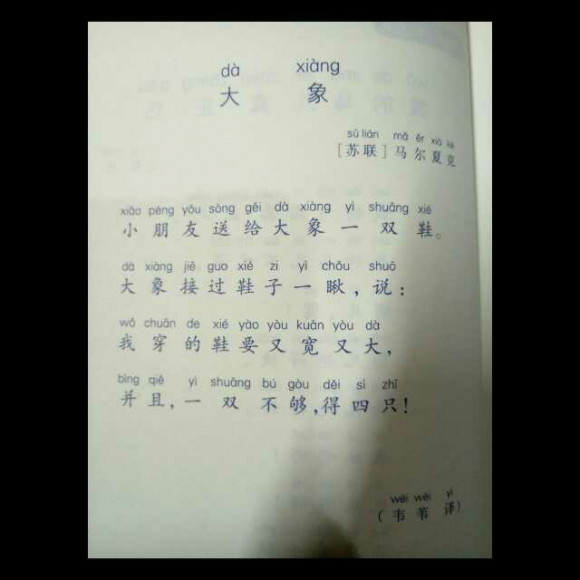 dà xiàng
大 象
sū lián mǎ ěr xià kè
[苏联]马尔夏克
xiǎo péng yǒu sòng gěi dà xiàng yì shuāng xié
小朋友送给大象一双鞋。
dà xiàng jiē guo xié zi yì chǒu shuō
大象接过鞋子一瞅,说:
wǒ chuān de xié yào yòu kuān yòu dà
我穿的鞋要又宽又大,
bìng qiě yì shuāng bú gòu děi sì zhī
并且,一双不够,得四只!
wéi wěi yì
(韦苇译)